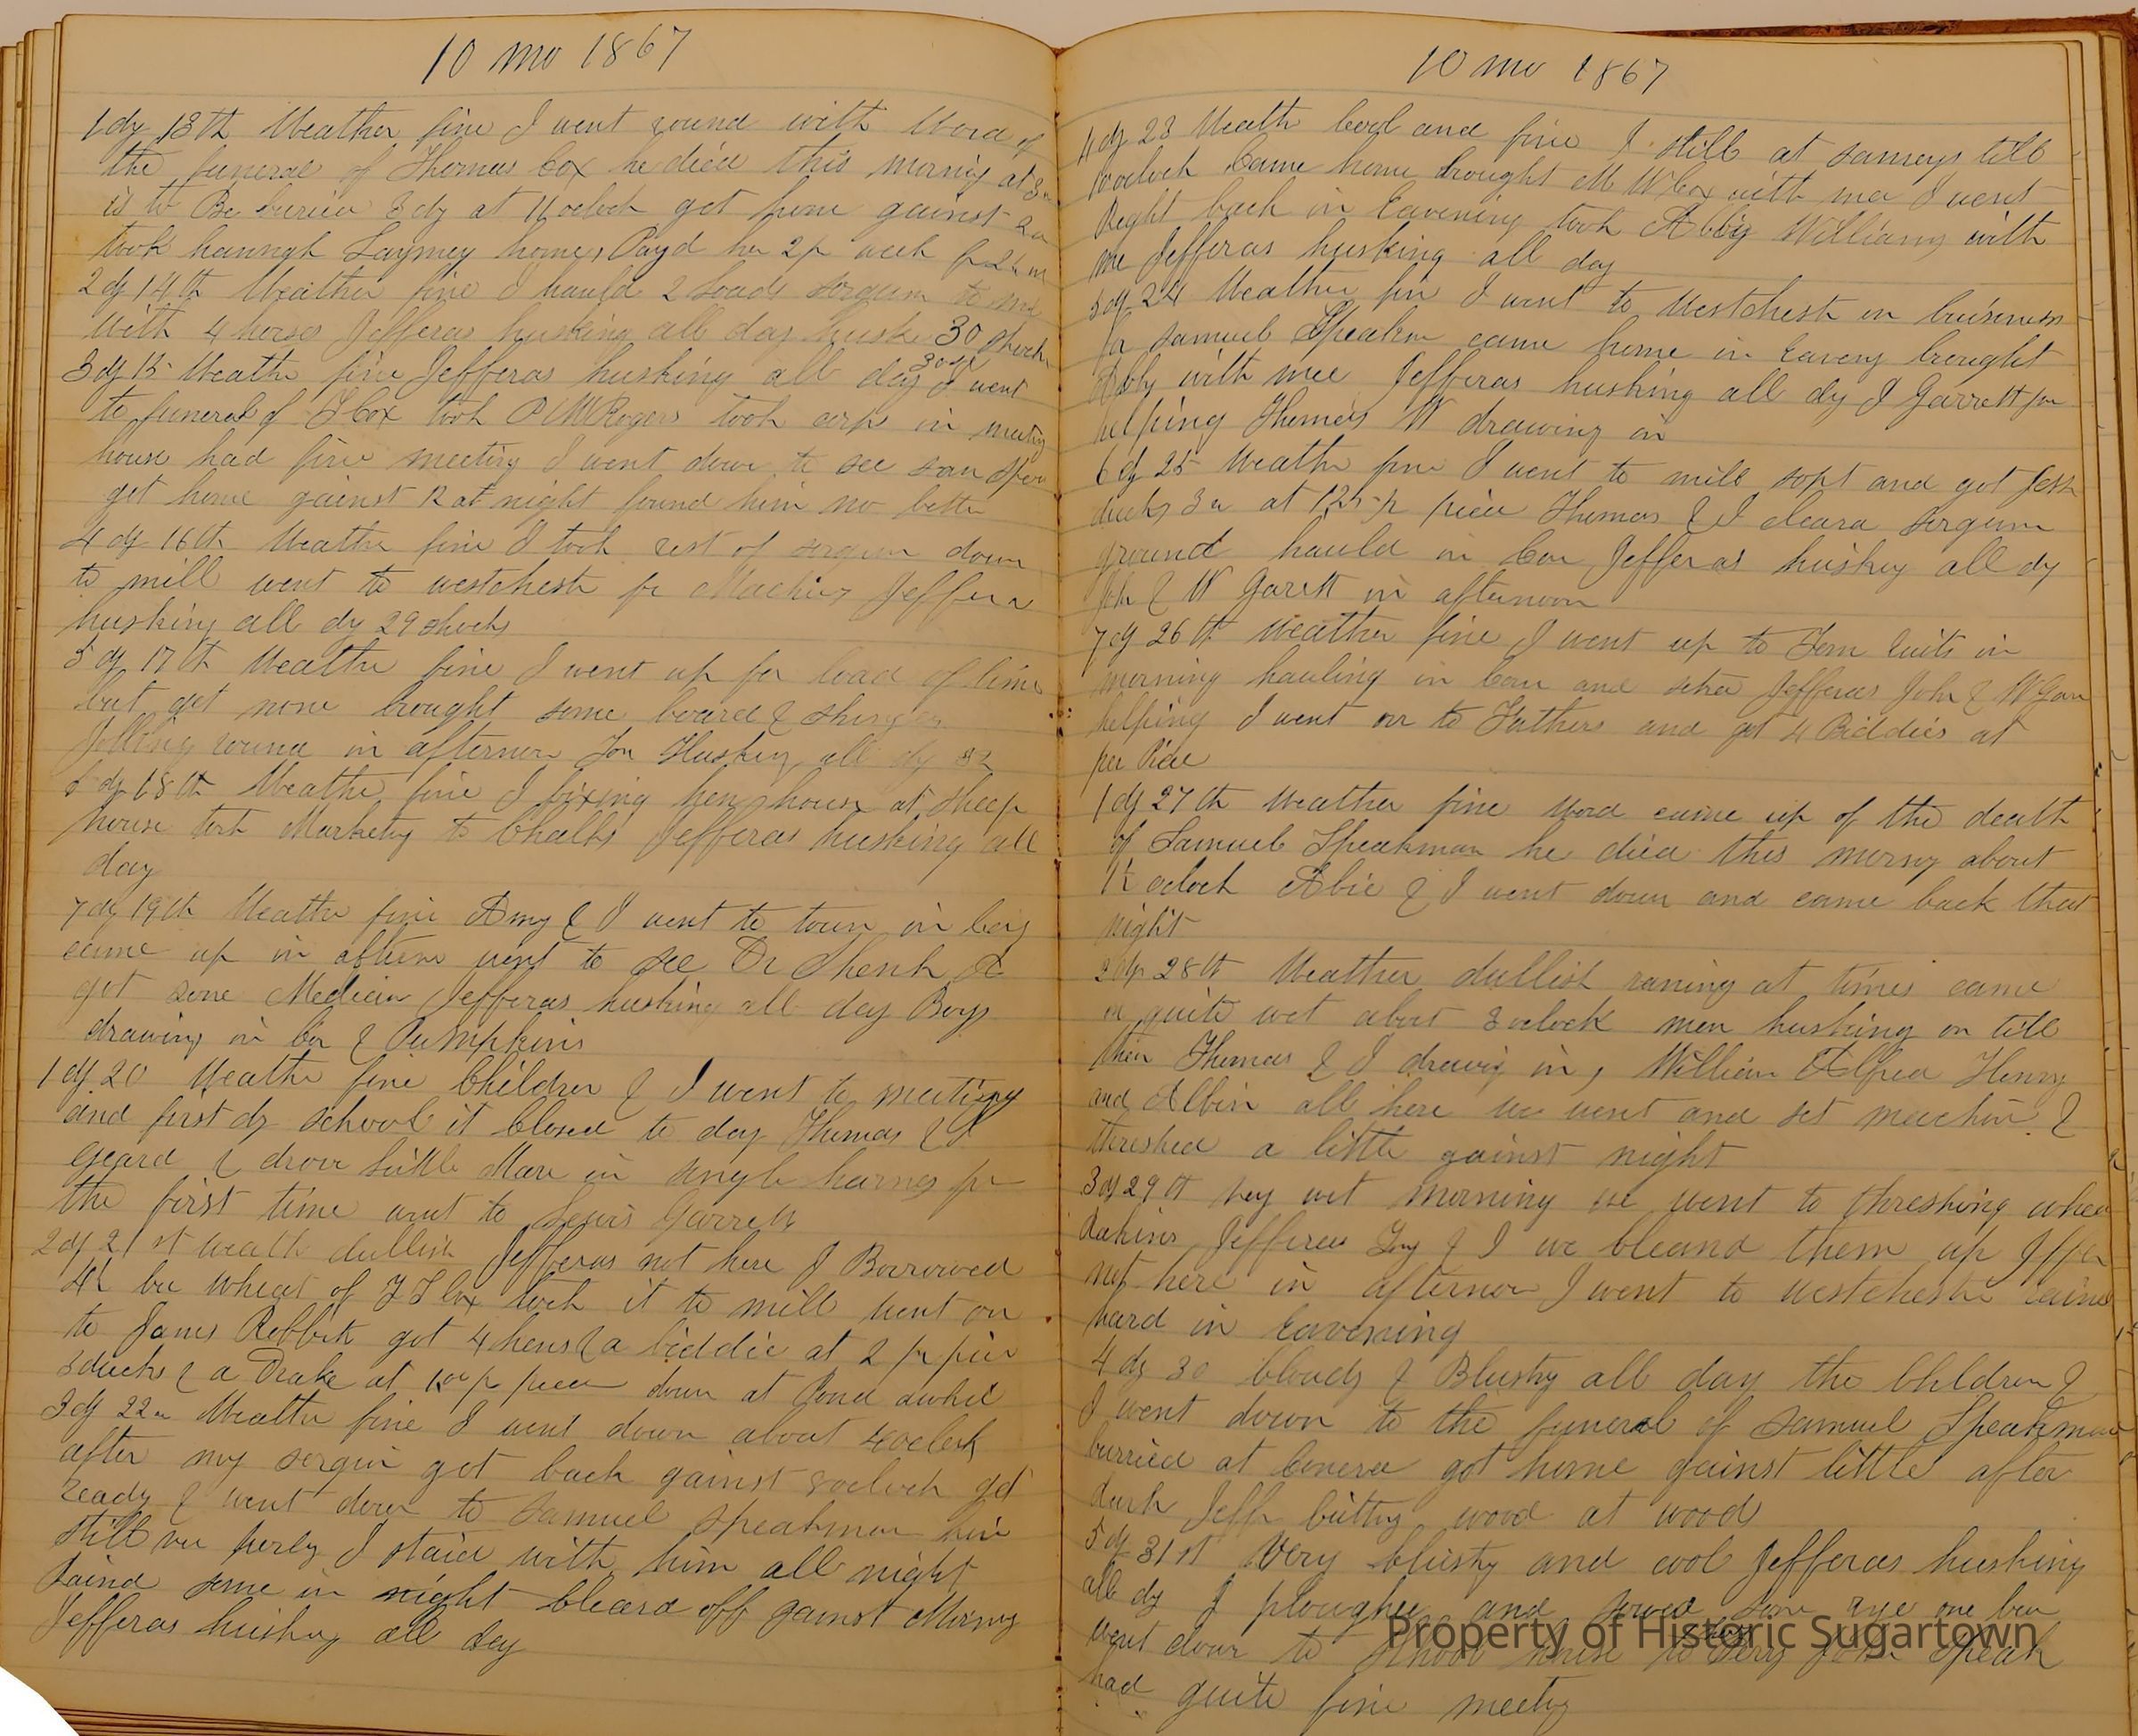 10 mo 1867
1 dy 13th Weather fine I went round with Word of
the funeral of Thomas Cox he died this morning at 3
is to Be buried 3 dy at 11 oclock got home gainst
took hannah home, Payd her 2 pr week for
2 dy 14th Weather fine I hauld 2 Loads sorgum to
With 4 horses Jefferas husking all day husk 30 shocks
3 dy 15 Weathe fine Jefferas husking all day I went
to funeral of T Cox took P W Rogers took corps in meeting
house had fine meeting I went down to see sam
got home gainst 12 at night found him no bette
4 dy 16th Weathe fine I took rest of sorgum down
to mill went to westcheste for Jeffera
husking all dy 29 shocks
5 dy 17th Weathe fine I went up for load of lime
but got none brought some board & shingles
round in afternon Husking all dy 32
6 dy 18th Weathe fine I fixing hen house at sheep
house took Marketing to Chalks Jefferas husking all
day
7 dy 19th Weathe fine Amy & I went to town in
came up in went to see Dr Shenk &
got some Medicin Jefferas husking all day Boys
drawing in Cor & Pumpkins
1 dy 20 Weathe fine Children & I went to meeting
and first dy school it Closed to day Thomas & I
geard & drove little Mare in single harnes for
the first time went to Lewis Garretts
2 dy 21st weath dullish Jefferas not here I Borrowed
bu wheat of Cox took it to mill went on
to James got 4 hens & a biddie at 2 pr piec
3 ducks & a Drake at pr piece down at Pond awhile
3 dy 22n Weathe fine I went down about 4 oclock
after my sorgum got back gainst 8 oclock got
ready & went down to Samuel Speakman him
still I staid with him all night
Raind some in night Cleard off gainst Morning
Jefferas husking all day
10 mo 1867
4 dy 23 Weath Cool and fine I still at samuys till
10 oclock Came home brought M W Cox with me I went
Right back in Eavening took Abbig Williams with
me Jefferas husking all day
5 dy 24 Weathe fin I went to Westcheste on buisness
for Samuel Speakm came home in Eaveng brought
Abby with mee Jefferas husking all dy J Garrett
helping Thomas W drawing in
6 dy 25 Weathe fine I went to mill sopt and got
ducks 3 at 125 pr piece Thomas & I cleard sorgum
ground hauld in Cor Jefferas huskng all dy
John & W Garett in afternoon
7 dy 26th Weather fine I went up to in
morning hauling in Corn and Jefferas John & W Garr
helping I went on to Fathers and got 4 Biddies at
per Piece
1 dy 27th Weather fine Word came up of the death
of Samuel Speakman he died this morng about
oclock Abbie & I went down and came back that
night
2 dy 28th Weather dullish raning at times came
on quite wet about 3 oclock men husking on till
then Thomas & I drawing in, William Alfred Henry
and Albin all here we went and set machine &
threshed a little gainst night
3 dy 29th very wet morning we went to threshing whea
Jefferas & I we Cleand them up Jeffer
not here in afternon I went to westcheste raind
hard in Eavening
4 dy 30 Cloudy & Blustry all day the Children &
I went down to the funeral of Samuel Speakman
burried at got home gainst little after
dark Jeffr Cutting wood at wood
5 dy 31st Very blusty and cool Jefferas husking
all dy I ploughed and sowed som rye one
went down to school house to speak
had quite fine meeting
Property of Historic Sugartown